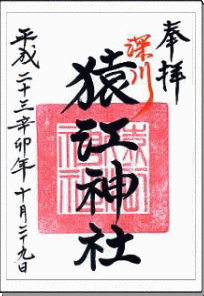 奉拝
深川
猿江神社
平成二十三辛卯年十月二十九日